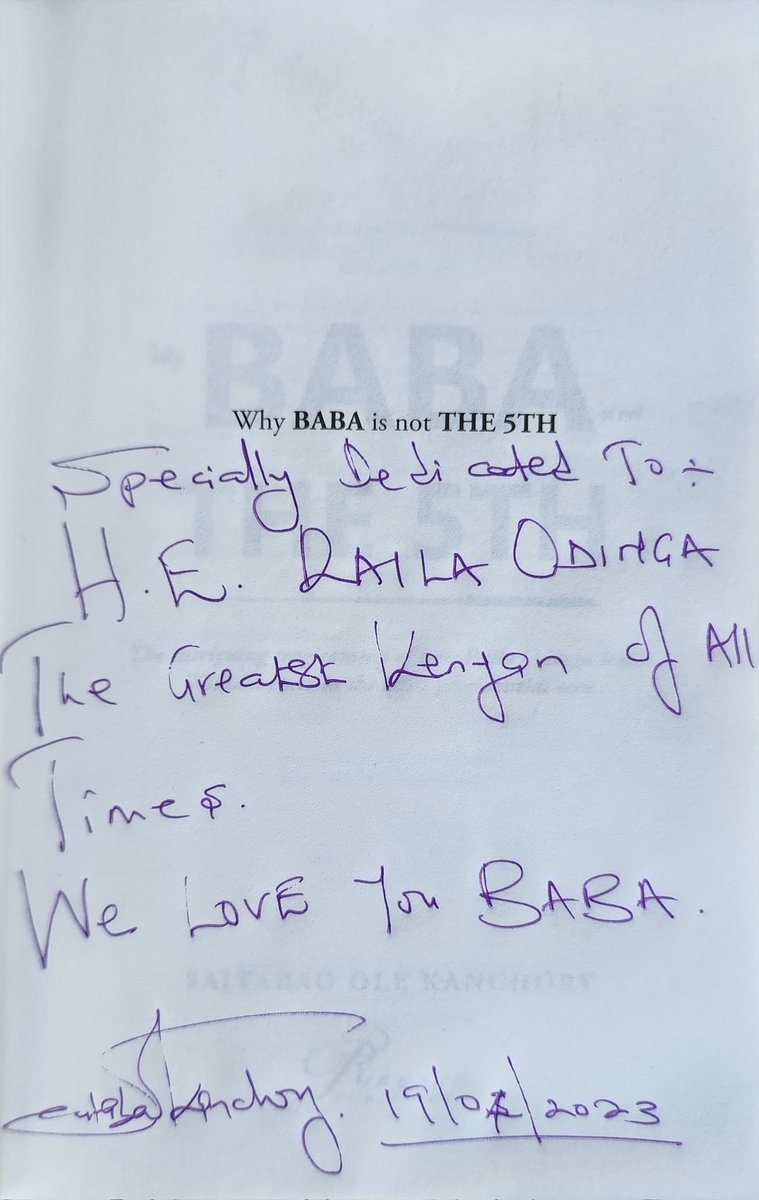 Why BABA is not THE 5TH
Specially Dedicated To :-
H.E. RAILA ODINGA
The Greatest Kenyan of All
Times.
We LOVE You BABA.
BABA
THE 5TH
SAITABAO OLE KANCHORY
19/04/2023